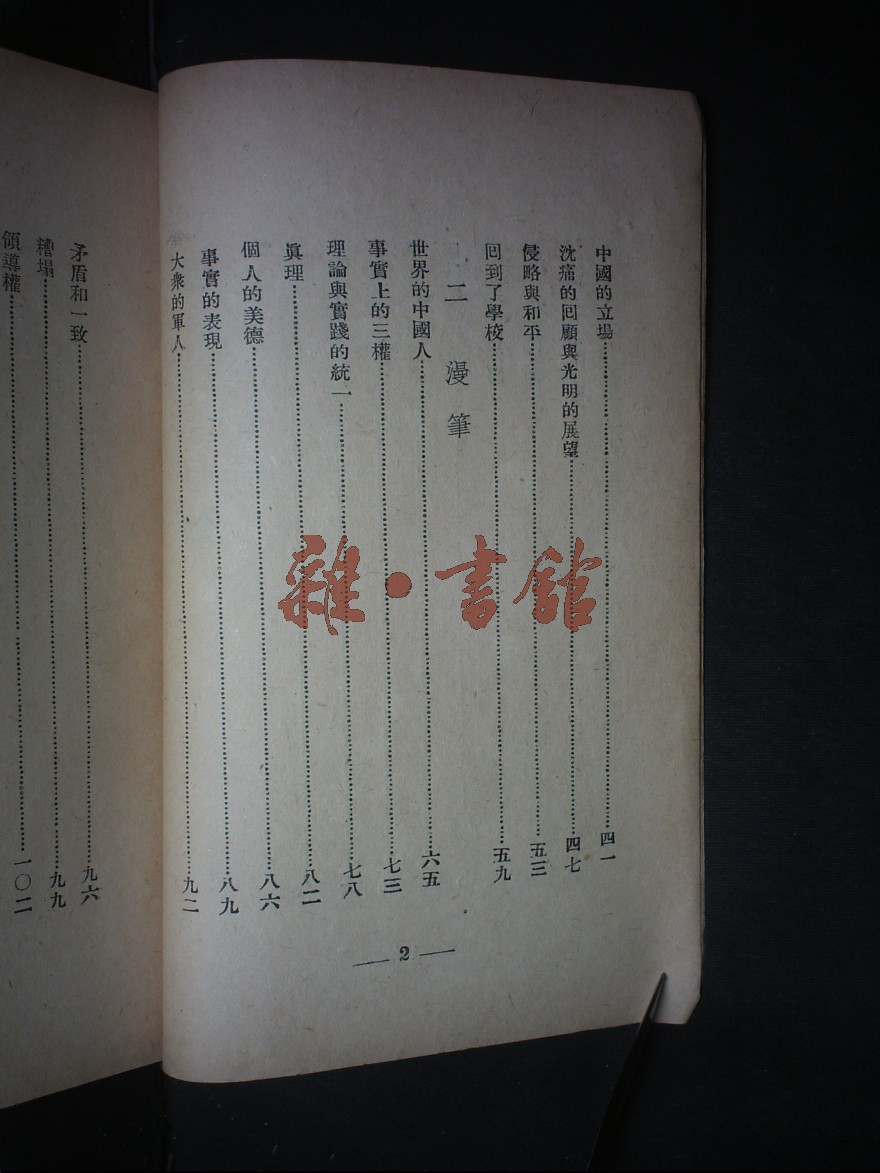 中國的立場……四一
沈痛的回顧與光明的展望……四七
侵略與和平……五三
回到了學校……五九
二 漫筆
世界的中國人……六五
事實上的三權……七三
理論與實踐的統一……七八
眞理……八二
個人的美德……八六
事實的表現……八九
大衆的軍人……九二
— 2 —
矛盾和一致……九六
糟塌……九九
領導權……一〇二
雜·書館